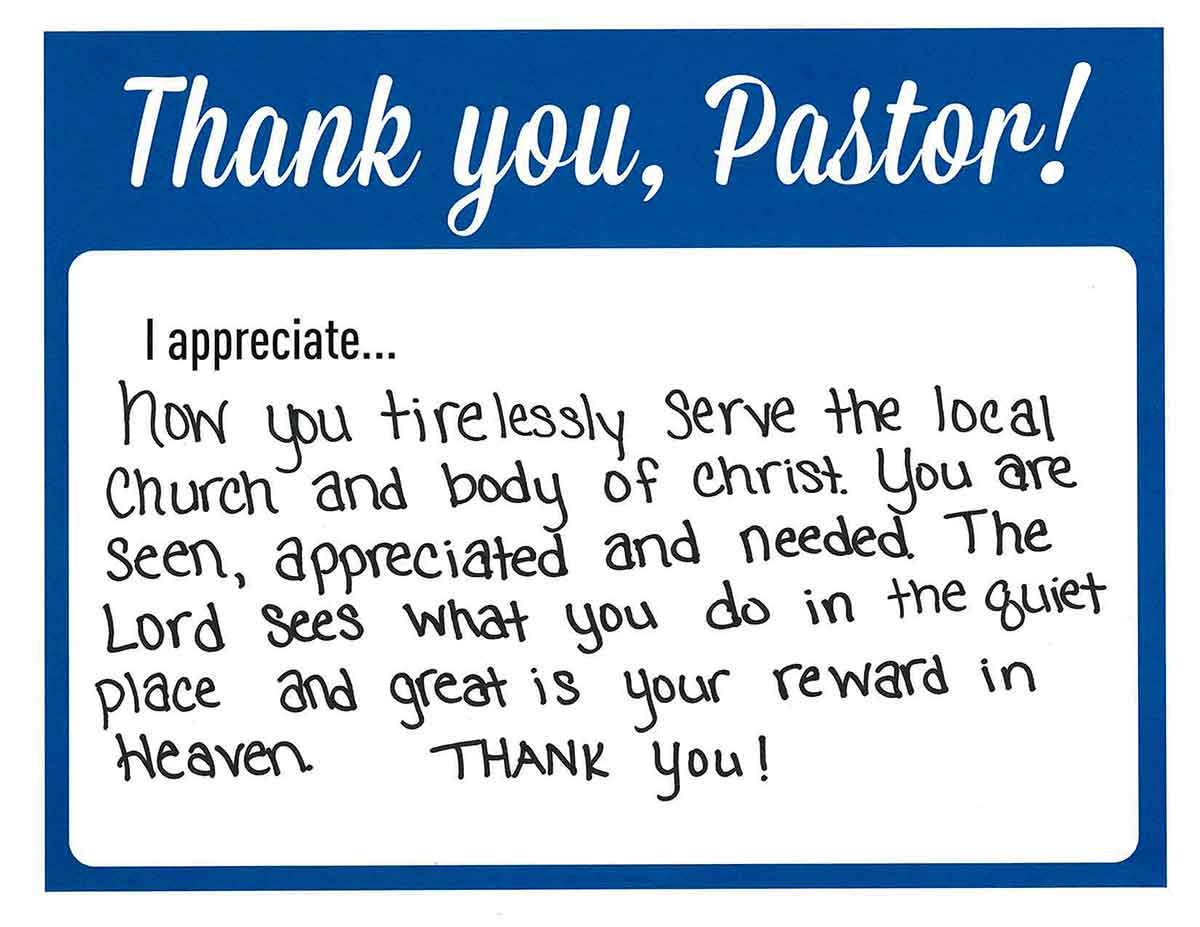 Thank you, Pastor!
I appreciate...
how you tirelessly serve the local
Church and body of christ. You are
seen, appreciated and needed. The
Lord sees what you do in the quiet
place and great is your reward in
Heaven. THANK you!